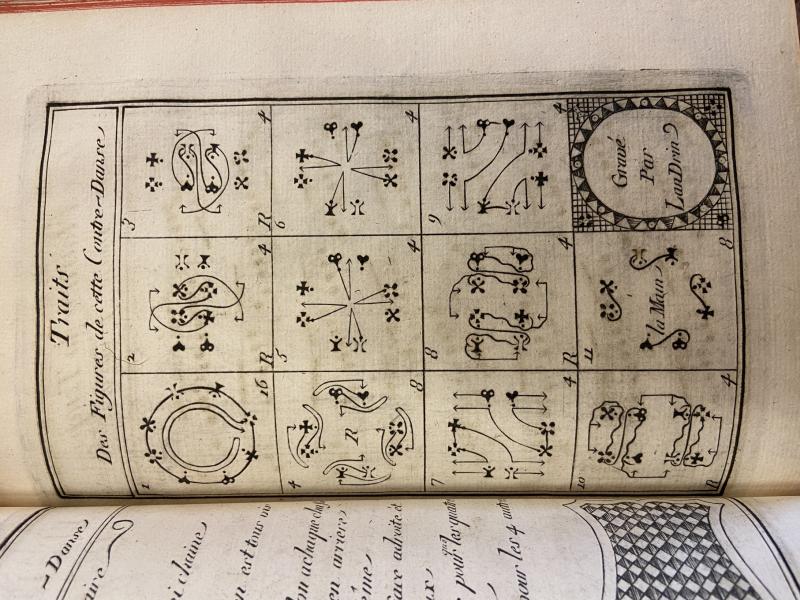 Traits
Des Figures de cette Contre-Danse
1
16
2
4
R
3
4
R
4
R
8
5
4
6
4
7
4
8
4
R
9
4
10
4
R
11
la Main
8
Gravé
Par
LanDrin
Danse
aire
i chaine
n est tous
on a chaque
en arriere
eme
face a droite et
ux
pour les quatre
pour les 4 autre